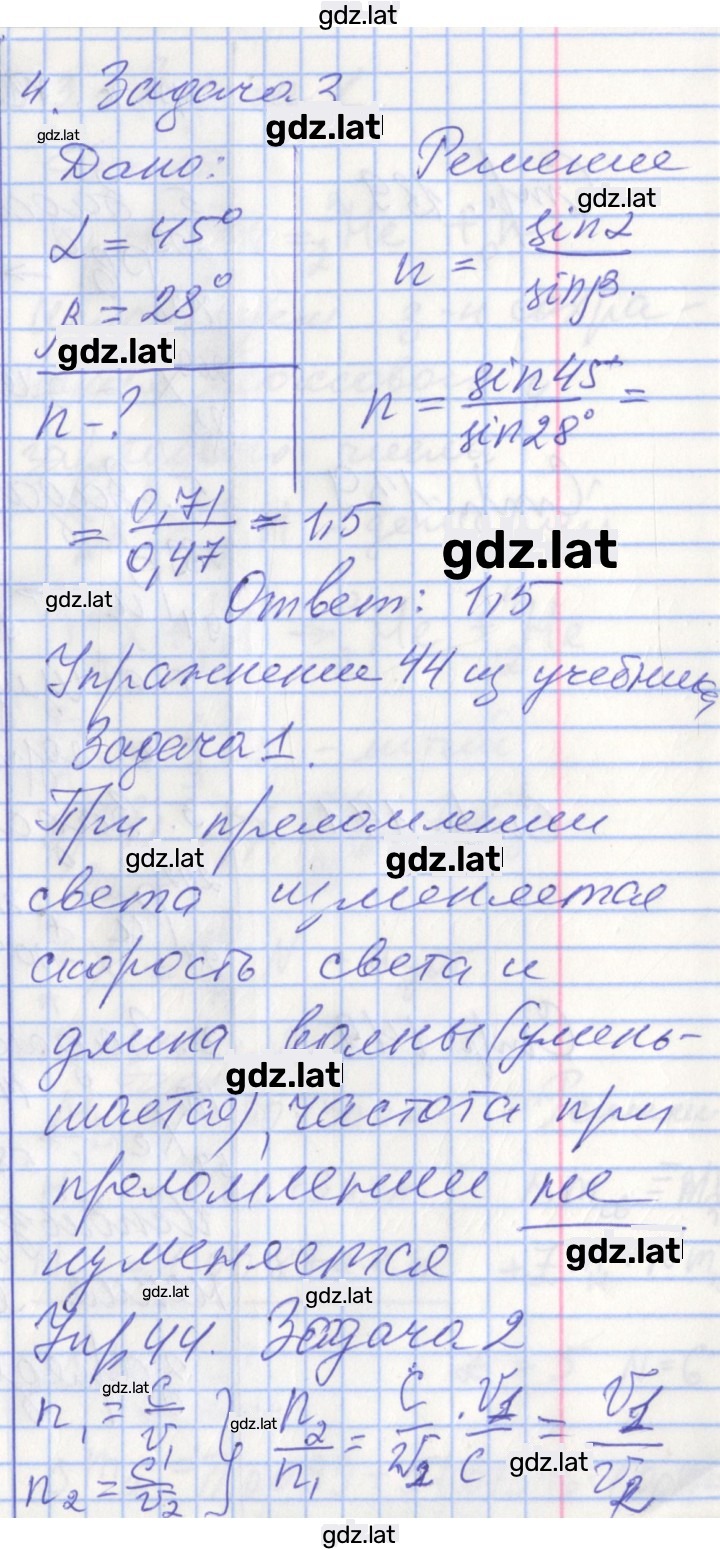 gdz.lat
4. Задача 3
gdz.lat
gdz.lat
Дано: Решение
gdz.lat
α = 45° n = sinα / sinβ.
β = 28°
gdz.lat
n - ? n = sin45° / sin28° =
= 0,71 / 0,47 = 1,5
gdz.lat
gdz.lat
Ответ: 1,5
Упражнение 44 из учебника
Задача 1.
При преломлении
gdz.lat
gdz.lat
света изменяется
скорость света и
длина волны (умень-
gdz.lat
шается), частота при
преломлении не
изменяется
gdz.lat
gdz.lat
gdz.lat
Упр 44. Задача 2
gdz.lat
n₁ = c / v₁ } n₂ / n₁ = c / v₂ · v₁ / c = v₁ / v₂
gdz.lat
gdz.lat
n₂ = c / v₂
gdz.lat